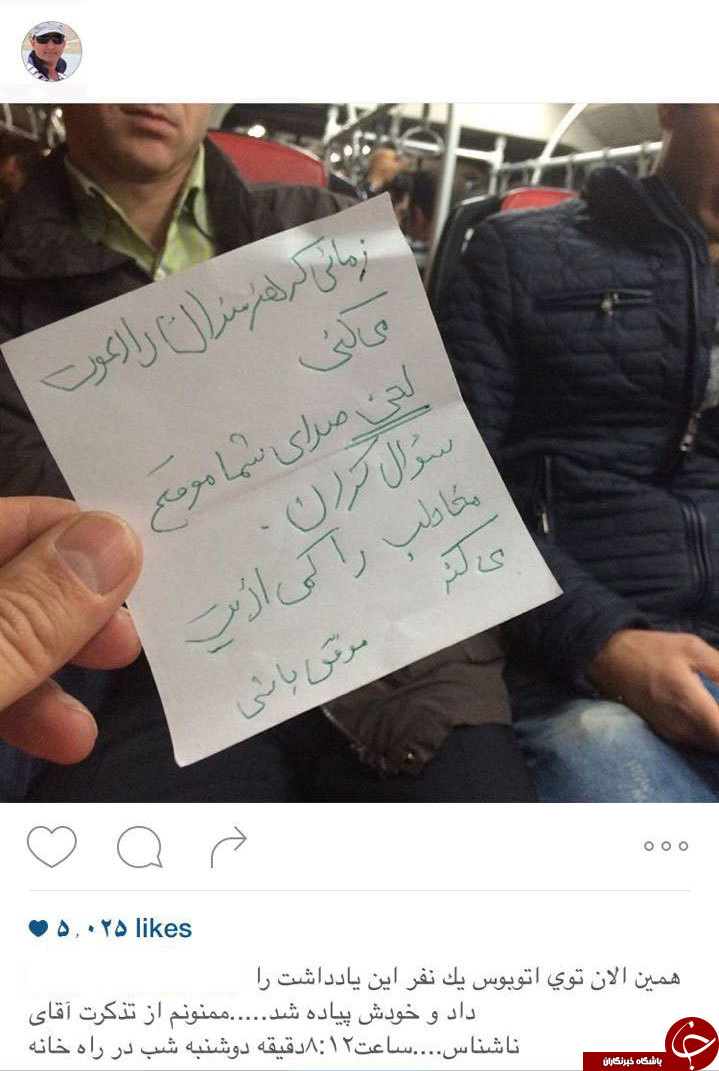 زمانی که هنرمندان را دعوت
می کنی
لحن صدای شما موقع
سؤال کردن.
مخاطب را کمی اذیت
می کند
موفق باشی
۵,۰۲۵ likes
همين الان توي اتوبوس يك نفر اين يادداشت را
داد و خودش پیاده شد.....ممنونم از تذکرت آقای
ناشناس....ساعت۸:۱۲دقیقه دوشنبه شب در راه خانه
باشگاه خبرنگاران